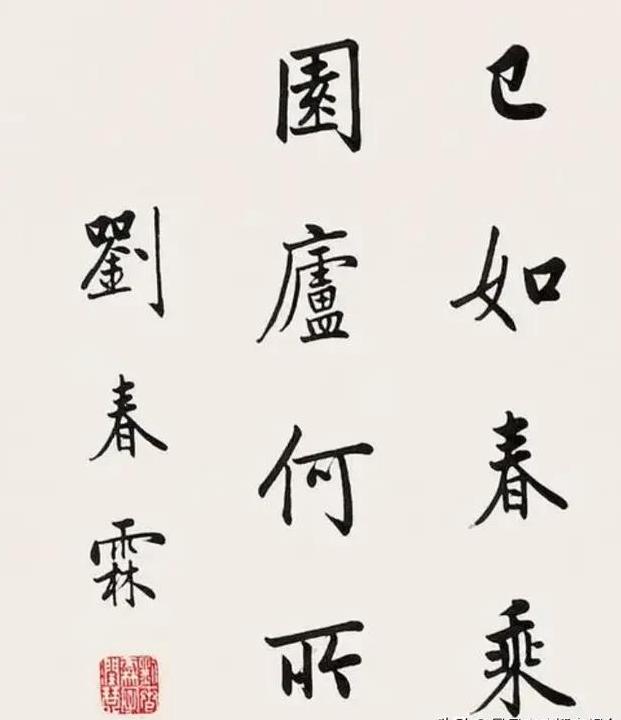 已如春乘
園廬何所
劉春霖